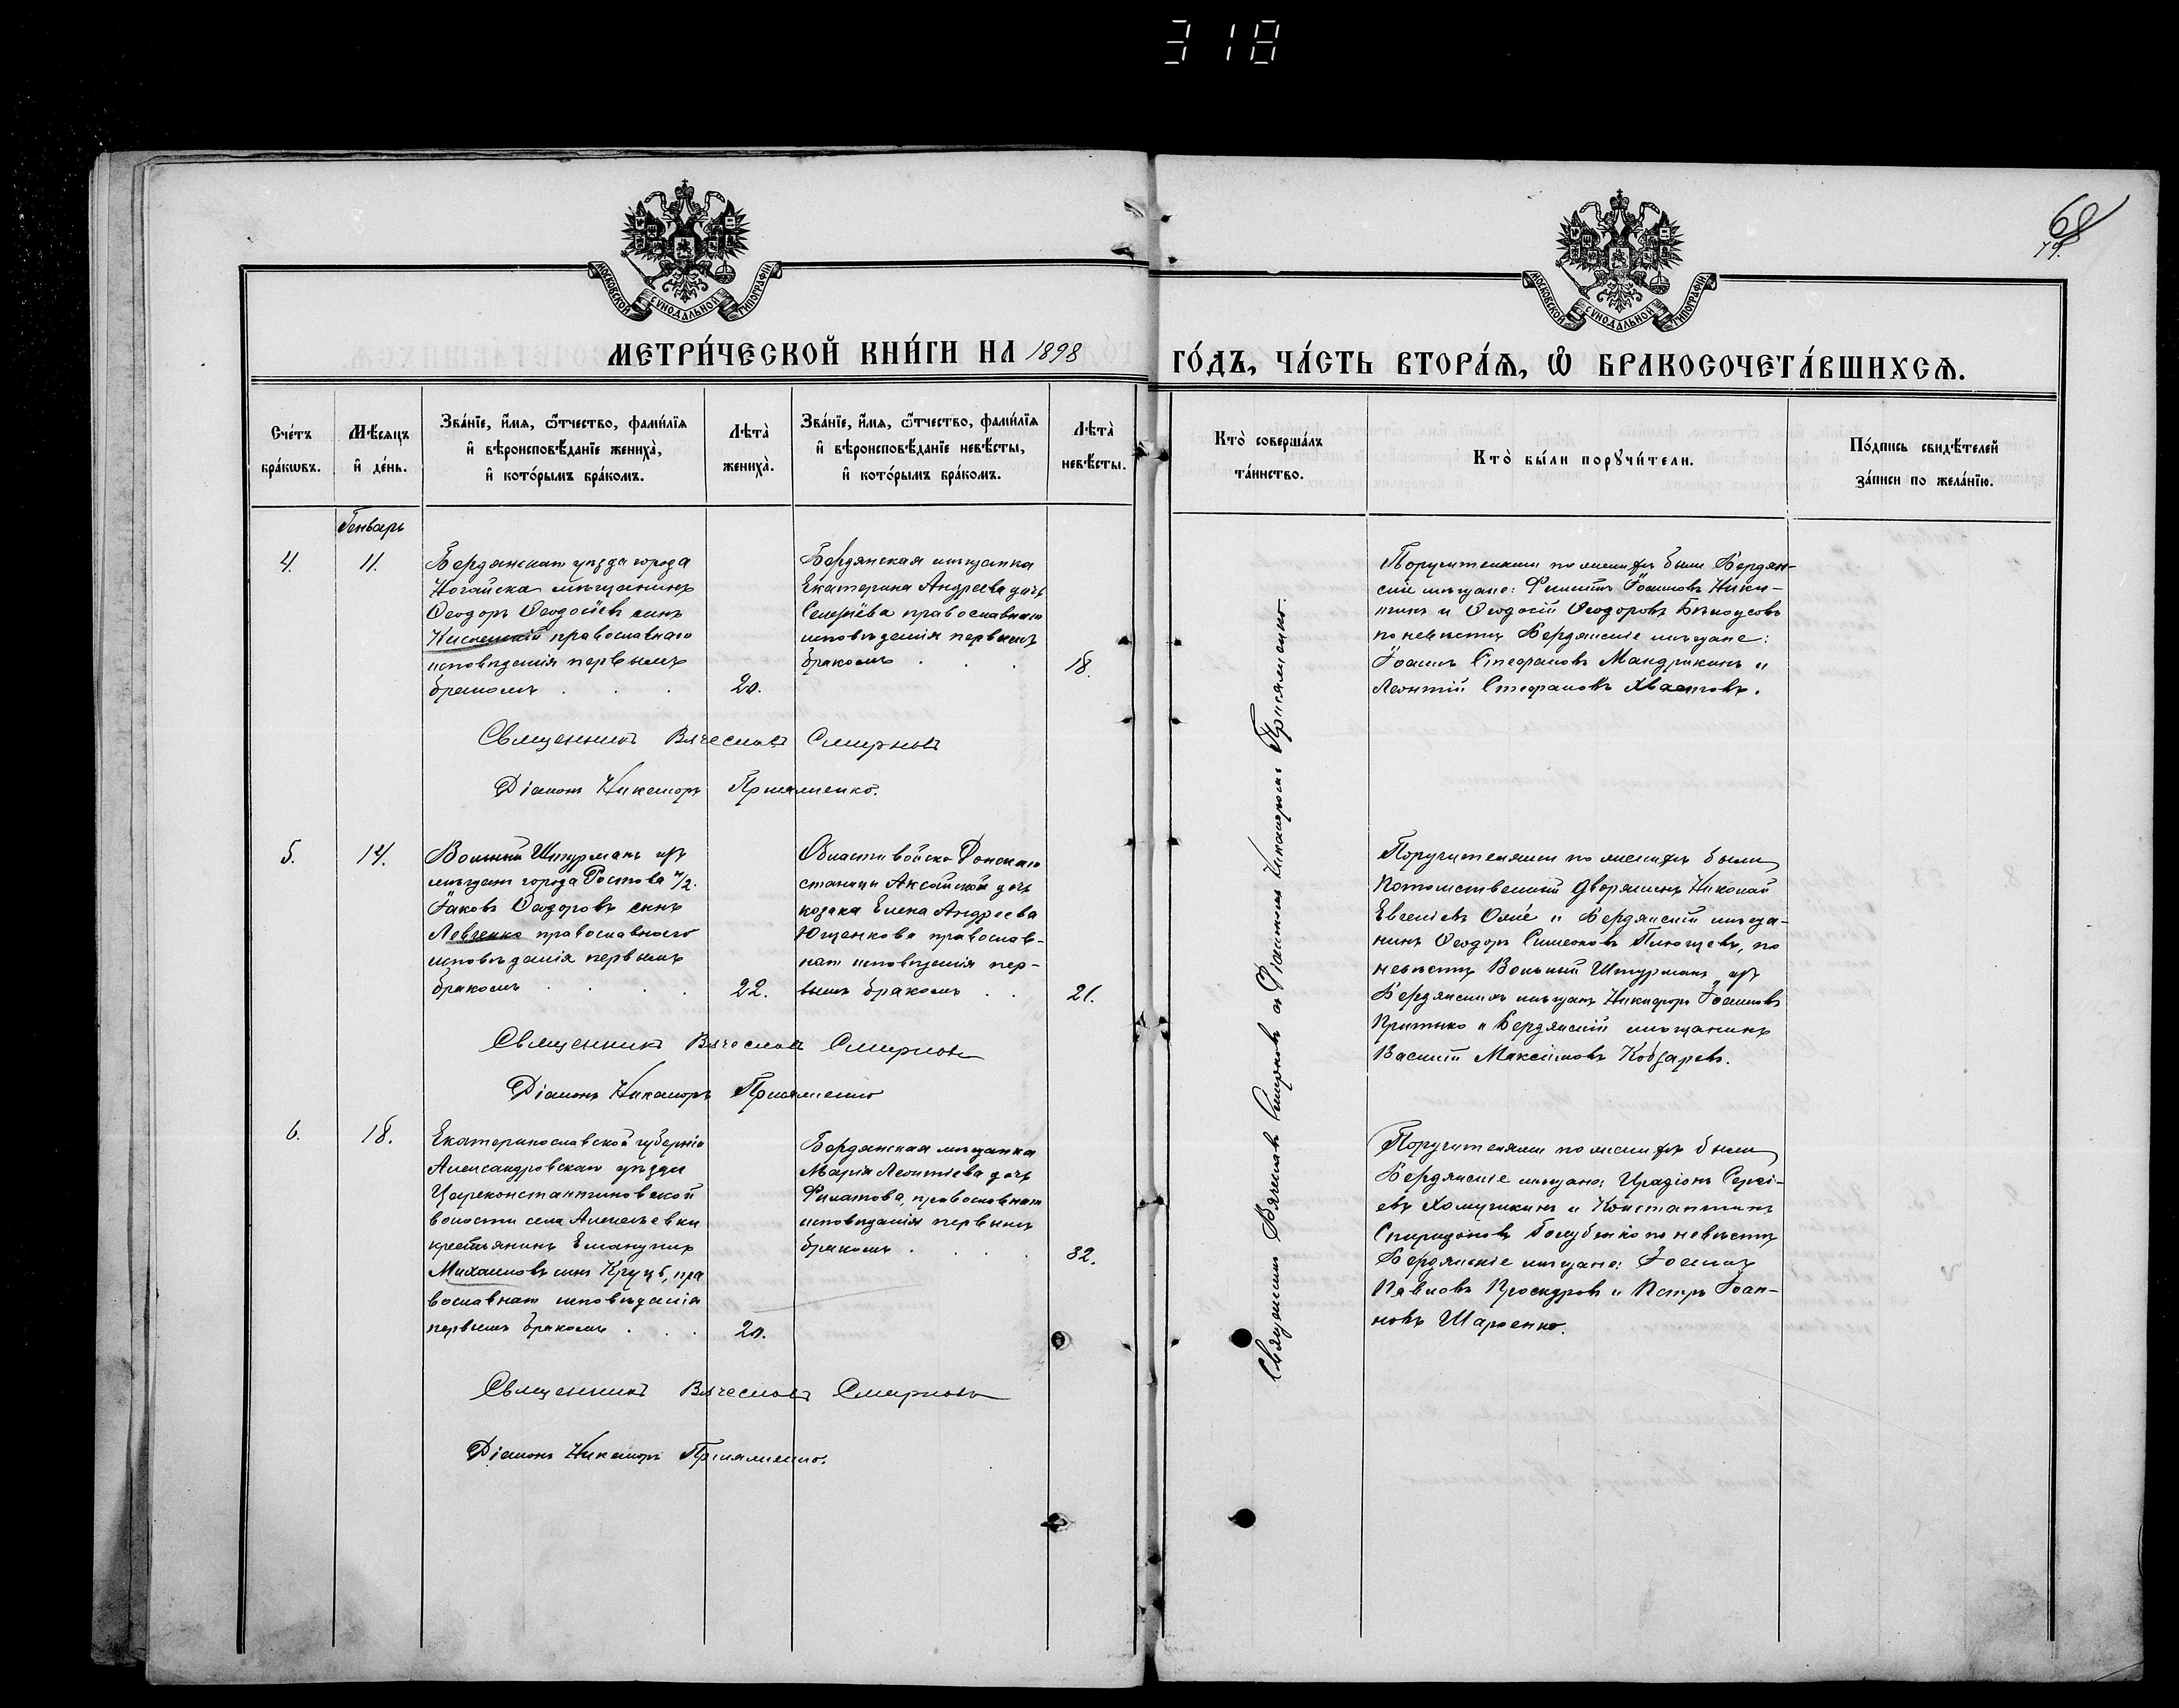 318
68
МОСКОВСКОЙ СѴНОДАЛЬНОЙ ТИПОГРАФІИ
МОСКОВСКОЙ СѴНОДАЛЬНОЙ ТИПОГРАФІИ
МЕТРИ́ЧЕСКОЙ КНИ́ГИ НА 1898
ГО́ДЪ, ЧА́СТЬ ВТОРА́Ѧ, Ѡ҆ БРАКОСОЧЕТА́ВШИХСѦ.
Сче́тъ
бра́кѡвъ.
Мѣ́сяцъ
и҆ де́нь.
Зва́нїе, и҆́мя, ѻ҆́тчество, фами́лїя
и҆ вѣроисповѣ́данїе жениха̀,
и҆ кото́рымъ бра́комъ.
Лѣта̀
жениха̀.
Зва́нїе, и҆́мя, ѻ҆́тчество, фами́лїя
и҆ вѣроисповѣ́данїе невѣ́сты,
и҆ кото́рымъ бра́комъ.
Лѣта̀
невѣ́сты.
Кто̀ соверша́лъ
та́инство.
Кто̀ бы́ли порꙋчи́тели.
По́дпись свидѣ́телей
за́писи по жела́нїю.
Генварь
4.
11.
Бердянскаго уѣзда города
Ногайска мѣщанинъ
Ѳеодоръ Ѳеодосіевъ сынъ
православнаго
исповѣданія первымъ
бракомъ . . .
20.
Бердянская мѣщанка
Екатерина Андреева дочь
православнаго
исповѣданія первымъ
бракомъ . . .
18.
Поручителями по женихѣ были Бердян-
скіе мѣщане: Филиппъ Іоанновъ Ники-
тинъ и Ѳеодосій Ѳеодоровъ Бѣлоусовъ
по невѣстѣ Бердянскіе мѣщане:
Іоаннъ Стефановъ Мандрыкинъ и
Леонтій Стефановъ Хвастовъ.
Священникъ Вячеславъ Смирновъ
Діаконъ Никаноръ
5.
14.
Вольный Штурманъ изъ
мѣщанъ города Ростова н/Д.
Іаковъ Ѳеодоровъ сынъ
Левченко православнаго
исповѣданія первымъ
бракомъ . . .
22.
Области войска Донскаго
станицы Аксайской дочь
козака Елена Андреева
Ющенкова православ-
наго исповѣданія пер-
вымъ бракомъ . .
21.
Поручителями по женихѣ были
потомственный дворянинъ Николай
Евгеніевъ и Бердянскій мѣща-
нинъ Ѳеодоръ Симеоновъ по
невѣстѣ Вольный Штурманъ изъ
Бердянскихъ мѣщанъ Никифоръ Іоанновъ
Притыко и Бердянскій мѣщанинъ
Василій Максимовъ Кобзаревъ.
Священникъ Вячеславъ Смирновъ
Діаконъ Никаноръ
6.
18.
Екатеринославской губерніи
Александровскаго уѣзда
Цареконстантиновской
волости села Алексѣевки
крестьянинъ Емануилъ
Михаиловъ сынъ пра
вославнаго исповѣданія
первымъ бракомъ . . .
20.
Бердянская мѣщанка
Марія Леонтіева дочь
Филатова, православнаго
исповѣданія первымъ
бракомъ . . .
32.
Поручителями по женихѣ были
Бердянскіе мѣщане: Иродіонъ Сергі-
евъ Хомутикинъ и Константинъ
Спиридоновъ Голубенко по невѣстѣ
Бердянскіе мѣщане: Іоаннъ
Павловъ и Петръ Іоан-
новъ
Священникъ Вячеславъ Смирновъ
Діаконъ Никаноръ
Священникъ Вячеславъ Смирновъ съ Діакономъ Никаноромъ